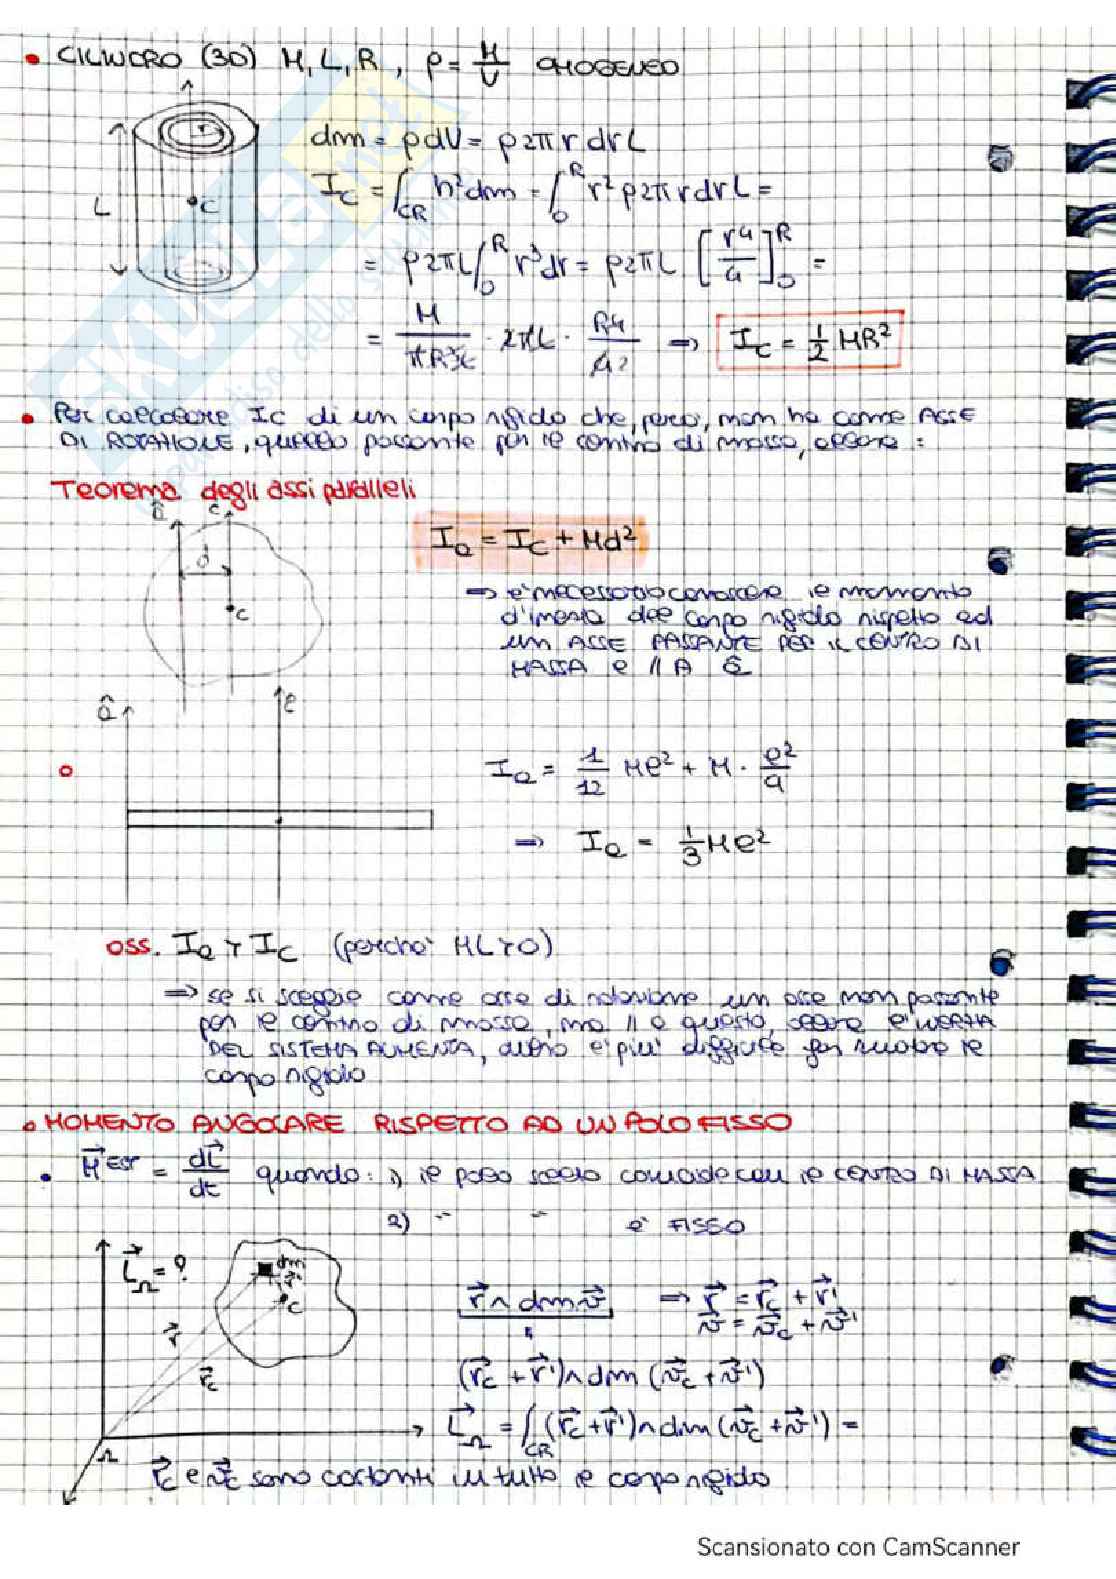 • CILINDRO (3D) M, L, R, ρ = M/V OMOGENEO
dm = ρdV = ρ2πrdrL
I_C = ∫_CR h²dm = ∫_0^R r²ρ2πrdrL =
L
C
= ρ2πL∫_0^R r³dr = ρ2πL [r⁴/4]_0^R =
= M/πR²L · 2πL · R⁴/4 2 => I_C = 1/2 MR²
• Per calcolare I_C di un corpo rigido che, però, non ha come ASSE
DI ROTAZIONE, quello passante per il centro di massa, occorre:
Teorema degli assi paralleli
I_Q = I_C + Md²
d
C
=> è necessario conoscere il momento
d'inerzia del corpo rigido rispetto ad
un ASSE PASSANTE PER IL CENTRO DI
MASSA e // A
I_Q = 1/12 Mℓ² + M · ℓ²/4
=> I_Q = 1/3 Mℓ²
oss. I_Q > I_C (perché ML>0)
=> se si sceglie come asse di rotazione un asse non passante
per il centro di massa, ma // a questo, allora l'INERZIA
DEL SISTEMA AUMENTA, è più difficile far ruotare il
corpo rigido
• MOMENTO ANGOLARE RISPETTO AD UN POLO FISSO
• M⃗^EST = dL⃗/dt quando: 1) il polo scelto coincide con il CENTRO DI MASSA
2) " " è FISSO
L⃗_Ω = ?
r⃗
r⃗_C
C
Ω
r⃗ ∧ dm v⃗ => r⃗ = r⃗_C + r⃗'
v⃗ = v⃗_C + v⃗'
(r⃗_C + r⃗') ∧ dm (v⃗_C + v⃗')
L⃗_Ω = ∫_CR (r⃗_C + r⃗') ∧ dm (v⃗_C + v⃗') =
r⃗_C e v⃗_C sono costanti in tutto il corpo rigido
Scansionato con CamScanner